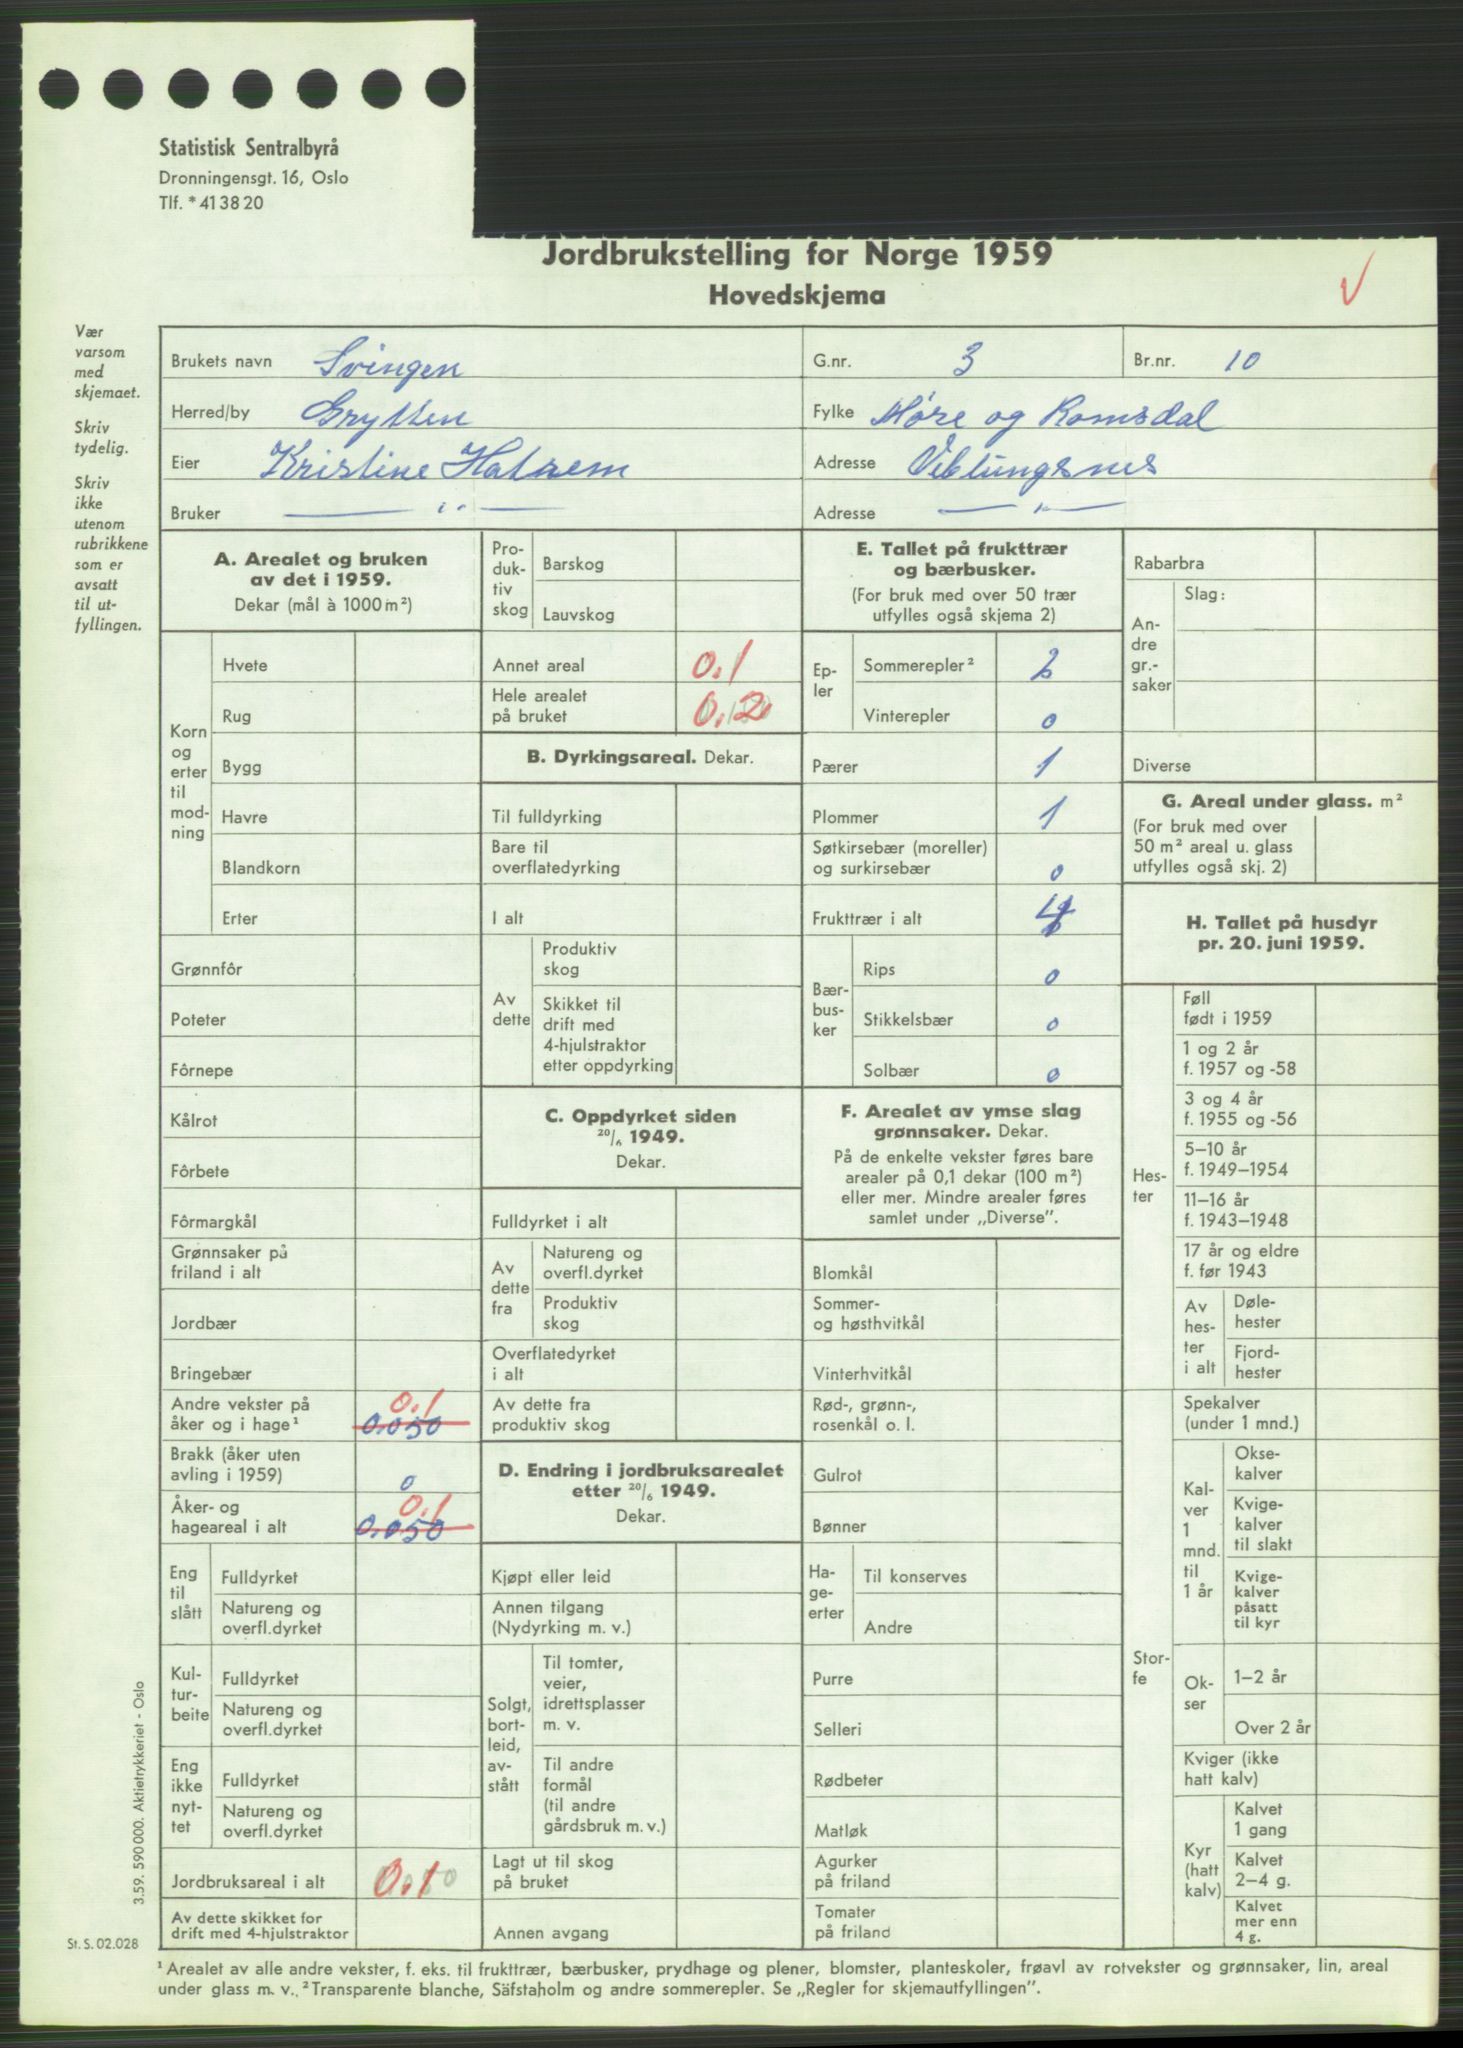 Statistisk Sentralbyrå
Dronningensgt. 16, Oslo
Tlf. * 41 38 20
Jordbrukstelling for Norge 1959
Hovedskjema
Vær
varsom
med
skjemaet.
Skriv
tydelig.
Skriv
ikke
utenom
rubrikkene
som er
avsatt
til ut-
fyllingen.
Brukets navn Svingen G.nr. 3 Br.nr. 10
Herred/by Grytten Fylke Møre og Romsdal
Eier Kristine Halsem Adresse Veblungsnes
Bruker — " — Adresse — " —
A. Arealet og bruken
av det i 1959.
Dekar (mål à 1000 m²)
Korn
og
erter
til
mod-
ning
Hvete
Rug
Bygg
Havre
Blandkorn
Erter
Grønnfôr
Poteter
Fôrnepe
Kålrot
Fôrbete
Fôrmargkål
Grønnsaker på
friland i alt
Jordbær
Bringebær
Andre vekster på 0.1
åker og i hage¹ 0.050
Brakk (åker uten
avling i 1959) 0
Åker- og 0.1
hageareal i alt 0.050
Eng
til
slått
Fulldyrket
Natureng og
overfl.dyrket
Kul-
tur-
beite
Fulldyrket
Natureng og
overfl.dyrket
Eng
ikke
nyt-
tet
Fulldyrket
Natureng og
overfl.dyrket
Jordbruksareal i alt 0.1
Av dette skikket for
drift med 4-hjulstraktor
Pro-
duk-
tiv
skog
Barskog
Lauvskog
Annet areal 0.1
Hele arealet
på bruket 0.2
B. Dyrkingsareal. Dekar.
Til fulldyrking
Bare til
overflatedyrking
I alt
Av
dette
Produktiv
skog
Skikket til
drift med
4-hjulstraktor
etter oppdyrking
C. Oppdyrket siden
20/6 1949.
Dekar.
Fulldyrket i alt
Av
dette
fra
Natureng og
overfl.dyrket
Produktiv
skog
Overflatedyrket
i alt
Av dette fra
produktiv skog
D. Endring i jordbruksarealet
etter 20/6 1949.
Dekar.
Kjøpt eller leid
Annen tilgang
(Nydyrking m. v.)
Solgt,
bort-
leid,
av-
stått
Til tomter,
veier,
idrettsplasser
m. v.
Til andre
formål
(til andre
gårdsbruk m. v.)
Lagt ut til skog
på bruket
Annen avgang
E. Tallet på frukttrær
og bærbusker.
(For bruk med over 50 trær
utfylles også skjema 2)
Ep-
ler
Sommerepler² 2
Vinterepler 0
Pærer 1
Plommer 1
Søtkirsebær (moreller)
og surkirsebær 0
Frukttrær i alt 4
Bær-
bus-
ker
Rips 0
Stikkelsbær 0
Solbær 0
F. Arealet av ymse slag
grønnsaker. Dekar.
På de enkelte vekster føres bare
arealer på 0,1 dekar (100 m²)
eller mer. Mindre arealer føres
samlet under „Diverse”.
Blomkål
Sommer-
og høsthvitkål
Vinterhvitkål
Rød-, grønn-,
rosenkål o. l.
Gulrot
Bønner
Ha-
ge-
erter
Til konserves
Andre
Purre
Selleri
Rødbeter
Matløk
Agurker
på friland
Tomater
på friland
Rabarbra
An-
dre
gr.-
saker
Slag:
Diverse
G. Areal under glass. m²
(For bruk med over
50 m² areal u. glass
utfylles også skj. 2)
H. Tallet på husdyr
pr. 20. juni 1959.
Hes-
ter
Føll
født i 1959
1 og 2 år
f. 1957 og -58
3 og 4 år
f. 1955 og -56
5–10 år
f. 1949–1954
11–16 år
f. 1943–1948
17 år og eldre
f. før 1943
Av
hes-
ter
i alt
Døle-
hester
Fjord-
hester
Stor-
fe
Spekalver
(under 1 mnd.)
Kal-
ver
1
mnd.
til
1 år
Okse-
kalver
Kvige-
kalver
til slakt
Kvige-
kalver
påsatt
til kyr
Ok-
ser
1–2 år
Over 2 år
Kviger (ikke
hatt kalv)
Kyr
(hatt
kalv)
Kalvet
1 gang
Kalvet
2–4 g.
Kalvet
mer enn
4 g.
3.59. 590 000. Aktietrykkeriet - Oslo
St. S. 02.028
¹ Arealet av alle andre vekster, f. eks. til frukttrær, bærbusker, prydhage og plener, blomster, planteskoler, frøavl av rotvekster og grønnsaker, lin, areal
under glass m. v. ² Transparente blanche, Säfstaholm og andre sommerepler. Se „Regler for skjemautfyllingen”.